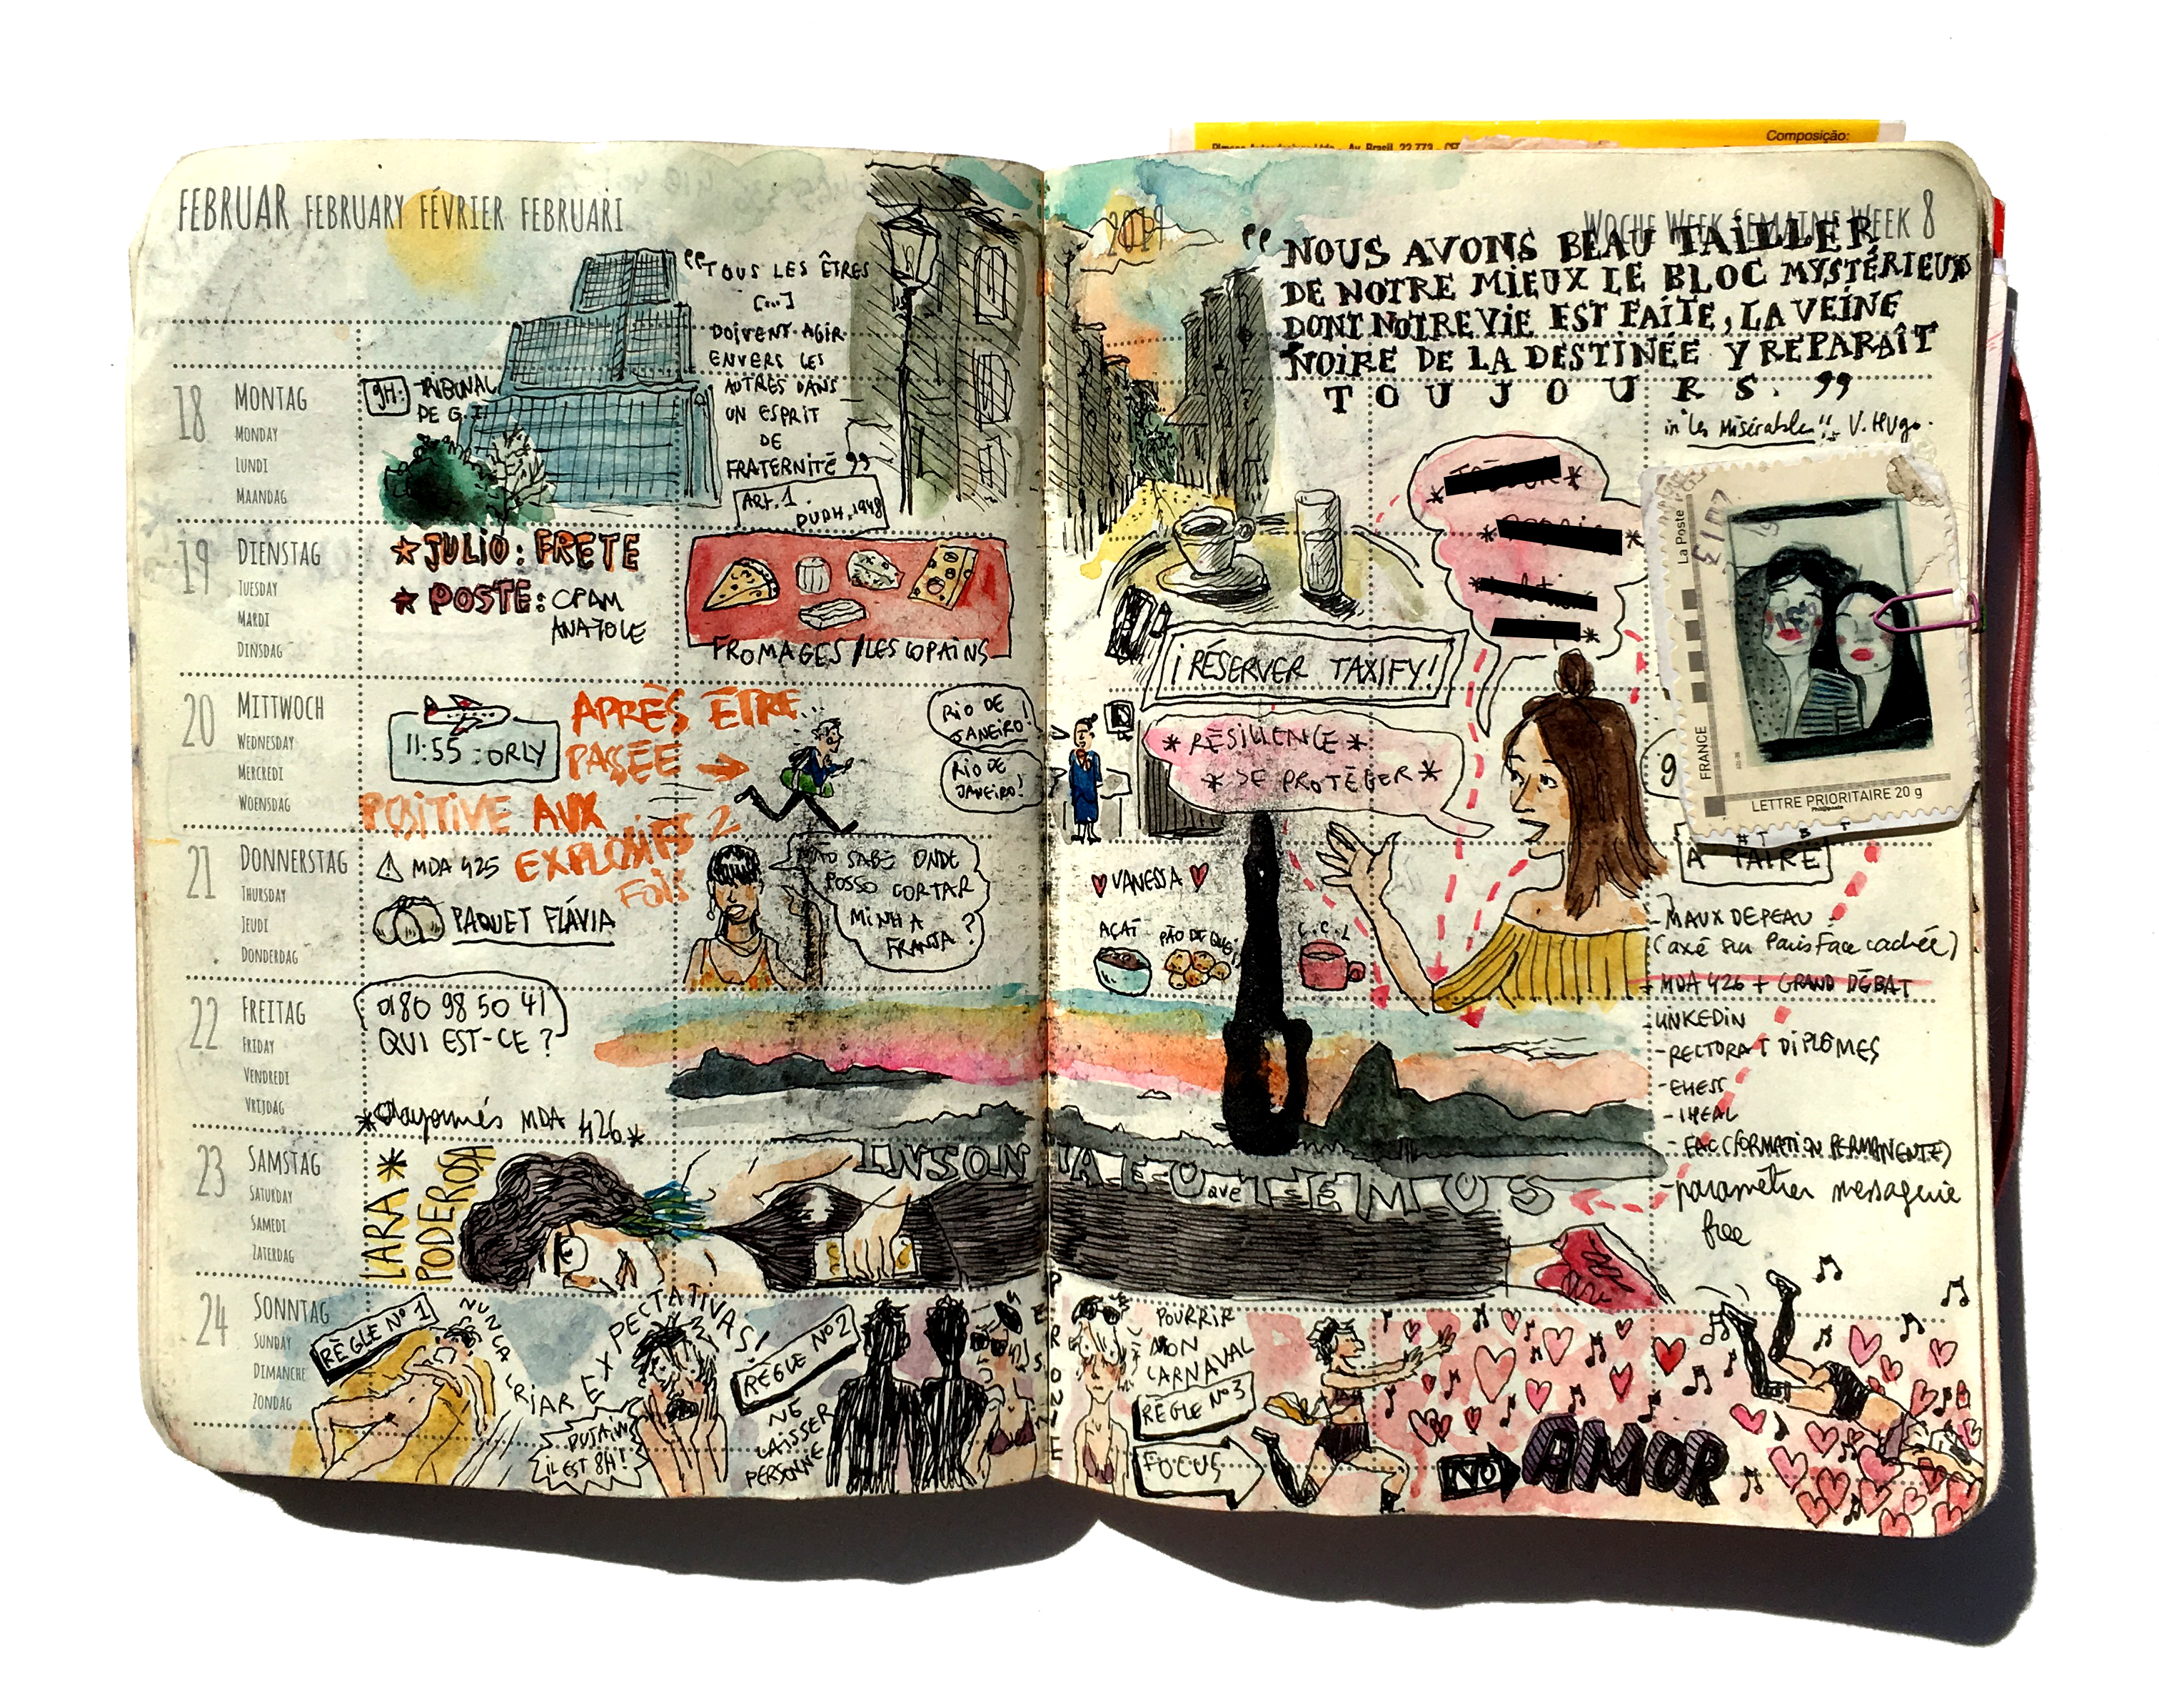 Composição:
Av. Brasil, 22.773
FEBRUAR FEBRUARY FÉVRIER FEBRUARI
18 MONTAG
MONDAY
LUNDI
MAANDAG
9H: TRIBUNAL
DE G.I
"TOUS LES ÊTRES
[...]
DOIVENT AGIR
ENVERS LES
AUTRES DANS
UN ESPRIT
DE
FRATERNITÉ"
ART. 1
DUDH, 1948
19 DIENSTAG
TUESDAY
MARDI
DINSDAG
JULIO: FRETE
POSTE: CPAM
ANATOLE
FROMAGES / LES COPAINS
20 MITTWOCH
WEDNESDAY
MERCREDI
WOENSDAG
11:55 : ORLY
APRÈS ÊTRE...
PASSÉE →
POSITIVE AUX
EXPLOSIFS 2
FOIS
RIO DE
JANEIRO!
RIO DE
JANEIRO!
21 DONNERSTAG
THURSDAY
JEUDI
DONDERDAG
MDA 425
PAQUET FLÁVIA
SABE ONDE
POSSO CORTAR
MINHA
FRANJA?
22 FREITAG
FRIDAY
VENDREDI
VRIJDAG
0180 98 50 41
QUI EST-CE ?
MDA 426*
23 SAMSTAG
SATURDAY
SAMEDI
ZATERDAG
LARA *
PODEROSA
24 SONNTAG
SUNDAY
DIMANCHE
ZONDAG
RÈGLE Nº 1
NUNCA
CRIAR EXPECTATIVAS!
PUTAIN
IL EST 8H!
RÈGLE Nº 2
NE
LAISSER
PERSONNE
2019
WOCHE WEEK SEMAINE WEEK 8
"NOUS AVONS BEAU TAILLER
DE NOTRE MIEUX LE BLOC MYSTÉRIEUX
DONT NOTRE VIE EST FAITE, LA VEINE
NOIRE DE LA DESTINÉE Y REPARAÎT
TOUJOURS."
in "Les Misérables", V. Hugo.
La Poste
FRANCE
LETTRE PRIORITAIRE 20 g
Phil@poste
¡ RÉSERVER TAXIFY!
* RÉSILIENCE *
* SE PROTÉGER *
9
VANESSA
AÇAÏ
PÃO DE
C.C.L
À FAIRE
- MAUX DE PEAU
(axé sur Paris Face cachée)
MDA 426 + GRAND DÉBAT
LINKEDIN
- RECTORAT DIPLÔMES
- EHESS
- IHEAL
- FAC (FORMATION PERMANENTE)
- paramétrer messagerie
free
POURRIR
MON
CARNAVAL
RÈGLE Nº3
FOCUS
NO AMOR